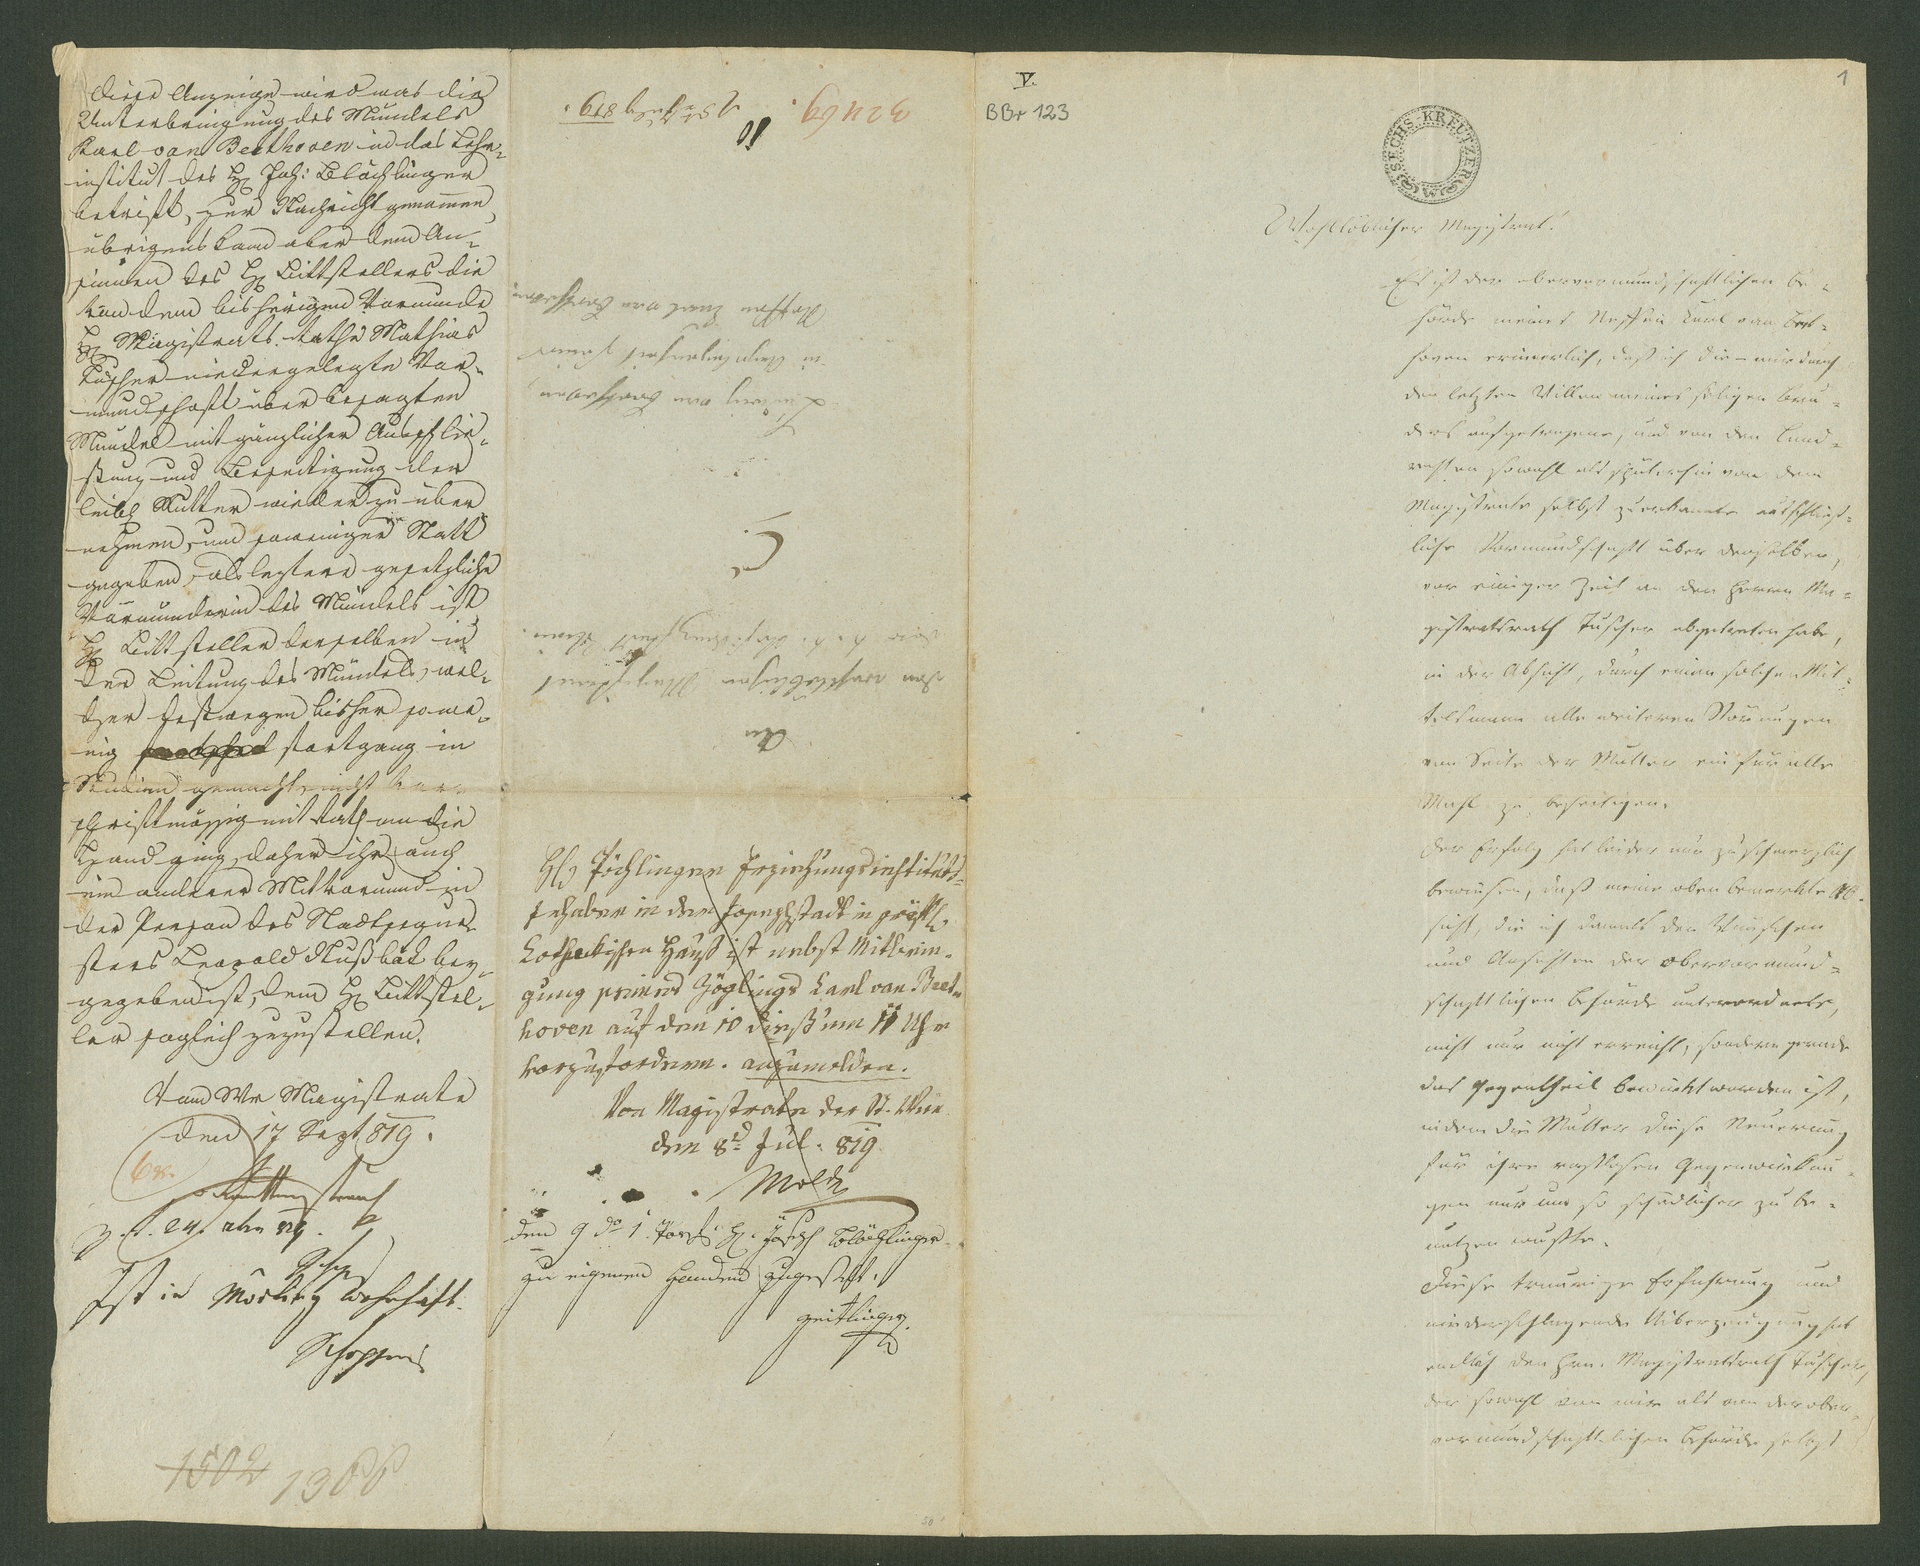 Diese Anzeige wird was die
Unterbringung des Mündels
Karl van Beethoven in das Lehr-
institut des H Joh: Blöchlinger
betrift, zur Nachricht genommen,
übrigens kann aber dem An-
sinnen des H Bittstellers die
von dem bisherigen Vormunde
H Magistrats Rathe Mathias
Tuscher niedergelegte Vor-
mundschaft über besagten
Mündel mit gänzlicher Ausschlie-
ßung und Beseitigung der
leibl Mutter wieder zu über
nehmen, um so weniger Statt
gegeben, als letztere gesetzliche
Vormünderin des Mündels ist
H Bittsteller derselben in
der Leitung des Mündels, wel-
cher deswegen bisher so we-
nig fortgang in
Studien gemacht, nicht vor
schriftmässig mit Rath an die
Hand ging, daher ihr auch
ein anderer Mitvormund in
der Person des Stadtseque-
sters Leopold Nußböck bey-
gegeben ist, dem H Bittstel-
ler sogleich zuzustellen.
Vom Wr Magistrate
den 17 Sept 819.
6 x
z. . 24. 819.
Ist in Mödling wohnhaft.
1502 1388
32469.
10
An
den wohllöblichen Magistrat
der k. k. Wien.
Ludwig van Beethoven
in Angelegenheit seines
Neffen Karl van Beethoven
H Pöchlinger Erziehungsinstituts-
Inhaber in der Josephstadt im gräfl.
Hauß ist nebst Mitbrin-
gung seines Zöglings Carl van Beet-
hoven auf den 10 dieß um 11 Uhr
vorzufordern. anzumelden.
Von Magistrate der St. Wien
den 8 Jul. 819.
den 9 H. Joseph Blöchlinger
zu eigenen Handen zugestellt.
V.
BBr 123
1
SECHS KREUTZER
Wohllöblicher Magistrat!
Es ist der obervormundschaftlichen Be-
hörde meines Neffen Carl van Beet-
hoven erinnerlich, daß ich die mir durch
den letzten Willen meines seligen Bru-
ders aufgetragene, und von den Land-
rechten sowohl als späterhin von dem
Magistrate selbst zuerkannte ausschließ-
liche Vormundschaft über denselben,
vor einiger Zeit an den Herrn Ma-
gistratsrath Tuscher abgetreten habe,
in der Absicht, durch einen solchen Mit-
telsmann alle weiteren Störungen
von Seite der Mutter ein für alle
Mahl zu beseitigen.
Der Erfolg hat leider nur zu schmerzlich
bewiesen, daß meine oben bemerkte Ab-
sicht, die ich damals den Wünschen
und Ansichten der obervormund-
schaftlichen Behörde unterordnete,
nicht nur nicht erreicht, sondern gerade
das Gegentheil bewirkt worden ist,
indem die Mutter diese Neuerung
für ihre rastlosen Gegenwirkun-
gen nur um so schädlicher zu be-
nutzen wußte.
Diese traurige Erfahrung und
niederschlagende Uiberzeugung hat
endlich den Hrn. Magistratsrath Tuscher,
der sowohl von mir als von der ober-
vormundschaftlichen Behörde selbst